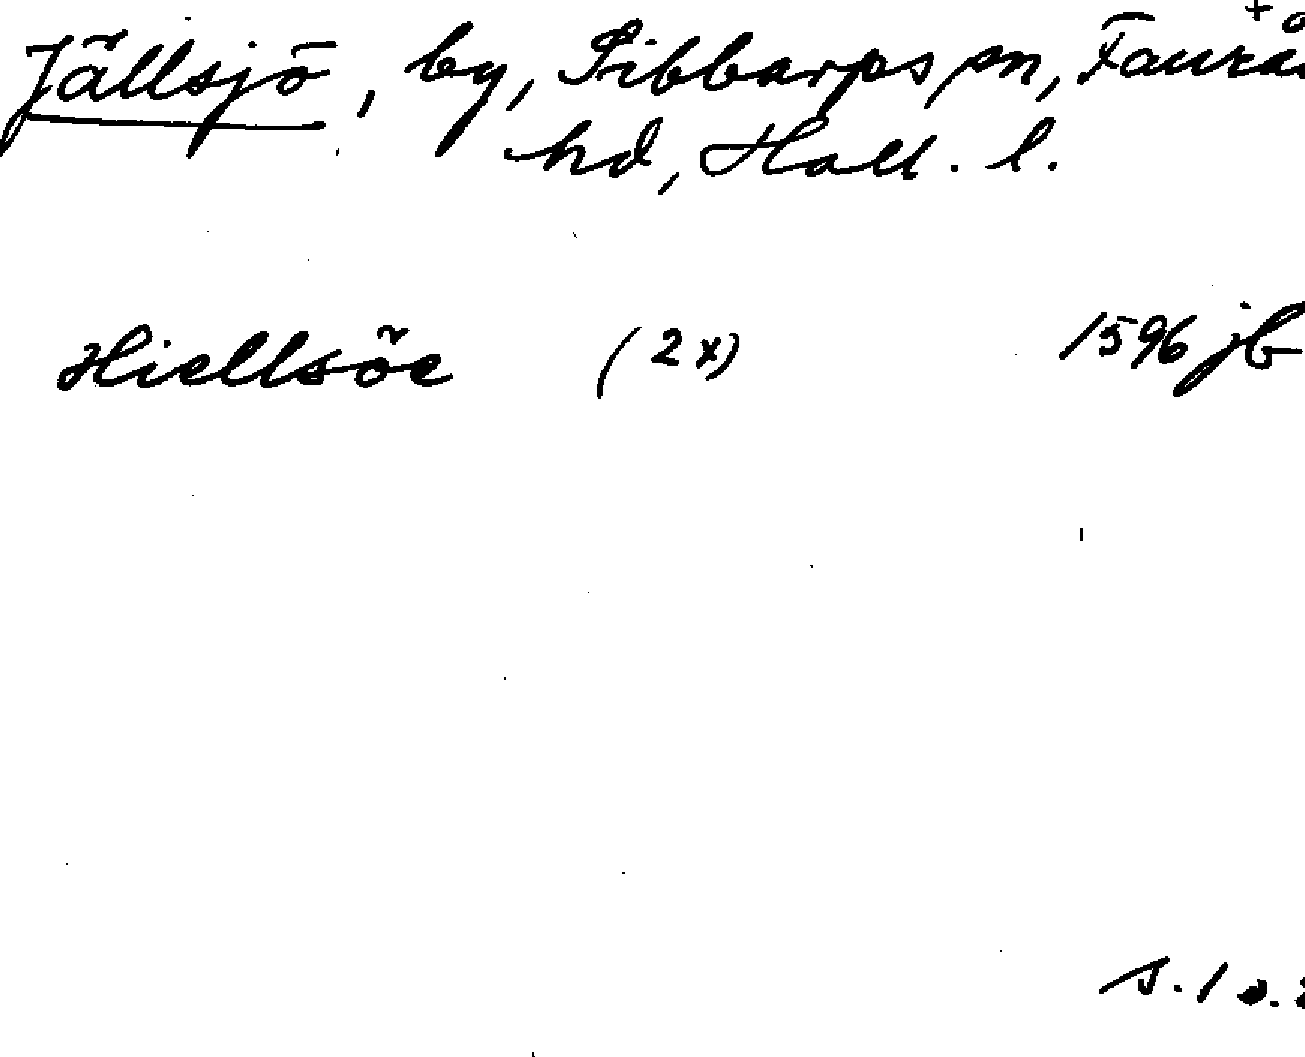 Jällsjö, by, Sibbarps sn, Faurås
hd, Hall. l.
Hiellsöe (2x) 1596 jb
s. 1 o.